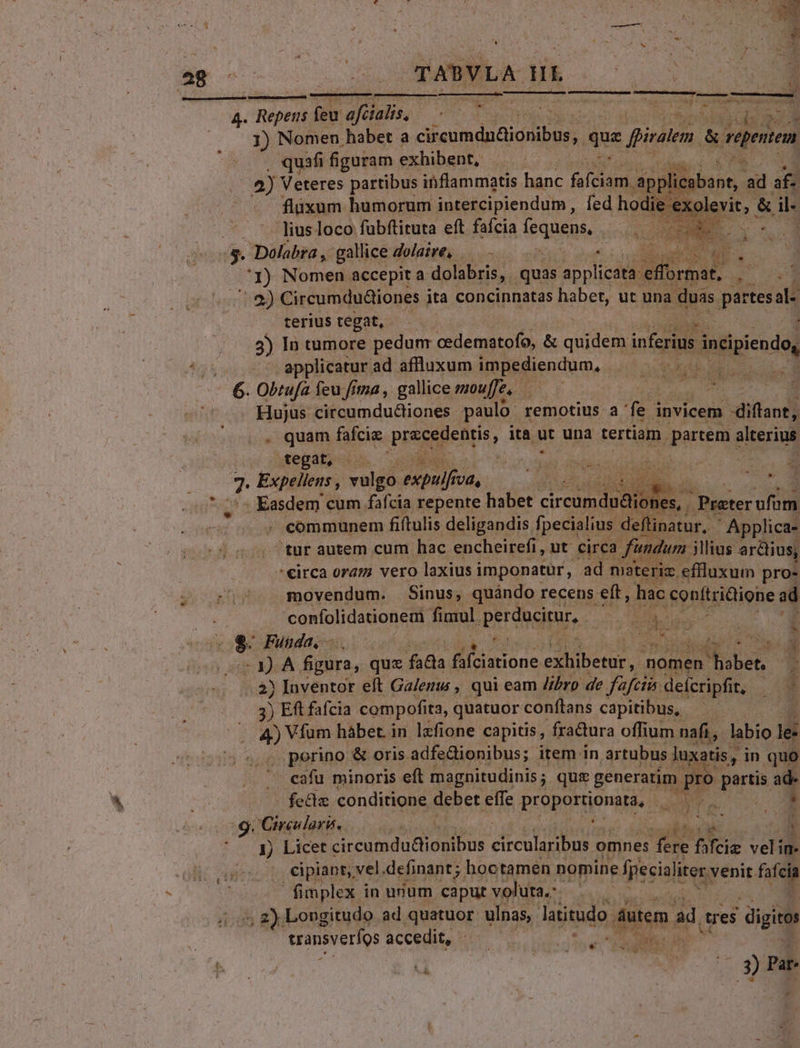 28 TABVLA III.
4. Repens ſeu aſcialis,
1) Nomen habet a circumductionibus, quæ ſpiralem & repentem
quaſi figuram exhibent,
2) Veteres partibus inflammatis hanc faſciam applicabant, ad af-
fluxum humorum intercipiendum, ſed hodie exolevit, & il-
lius loco ſubſtituta eſt faſcia ſequens,
5. Dolabra, gallice dolaire,
1) Nomen accepit a dolabris, quas applicata efformat,
2) Circumductiones ita concinnatas habet, ut una duas partes al-
terius tegat,
3) In tumore pedum œdematoſo, & quidem inferius incipiendo,
applicatur ad affluxum impediendum,
6. Obtuſa ſeu ſima, gallice mouſſe,
Hujus circumductiones paulo remotius a ſe invicem diſtant,
quam faſciæ præcedentis, ita ut una tertiam partem alterius
tegat,
7. Expellens, vulgo expulſiva,
Easdem cum faſcia repente habet circumductiones, Præter uſum
communem fiſtulis deligandis ſpecialius deſtinatur. Applica-
tur autem cum hac encheireſi, ut circa fundum illius arctius,
circa oram vero laxius imponatur, ad materiæ effluxum pro-
movendum. Sinus, quando recens eſt, hac conſtrictione ad
conſolidationem ſimul perducitur,
8. Funda,
1) A figura, quæ facta faſciatione exhibetur, nomen habet,
2) Inventor eſt Galenus, qui eam libro de faſciis deſcripſit,
3) Eſt faſcia compoſita, quatuor conſtans capitibus,
4) Vſum habet in læſione capitis, fractura oſſium naſi, labio le-
porino & oris adfectionibus; item in artubus luxatis, in quo
caſu minoris eſt magnitudinis; quæ generatim pro partis ad-
fectæ conditione debet eſſe proportionata,
9. Circularis.
1) Licet circumductionibus circularibus omnes fere faſciæ vel in-
cipiant, vel definant; hoc tamen nomine ſpecialiter venit faſcia
ſimplex in unum caput voluta.
2) Longitudo ad quatuor ulnas, latitudo autem ad tres digitos
transverſos accedit,
3) Par-